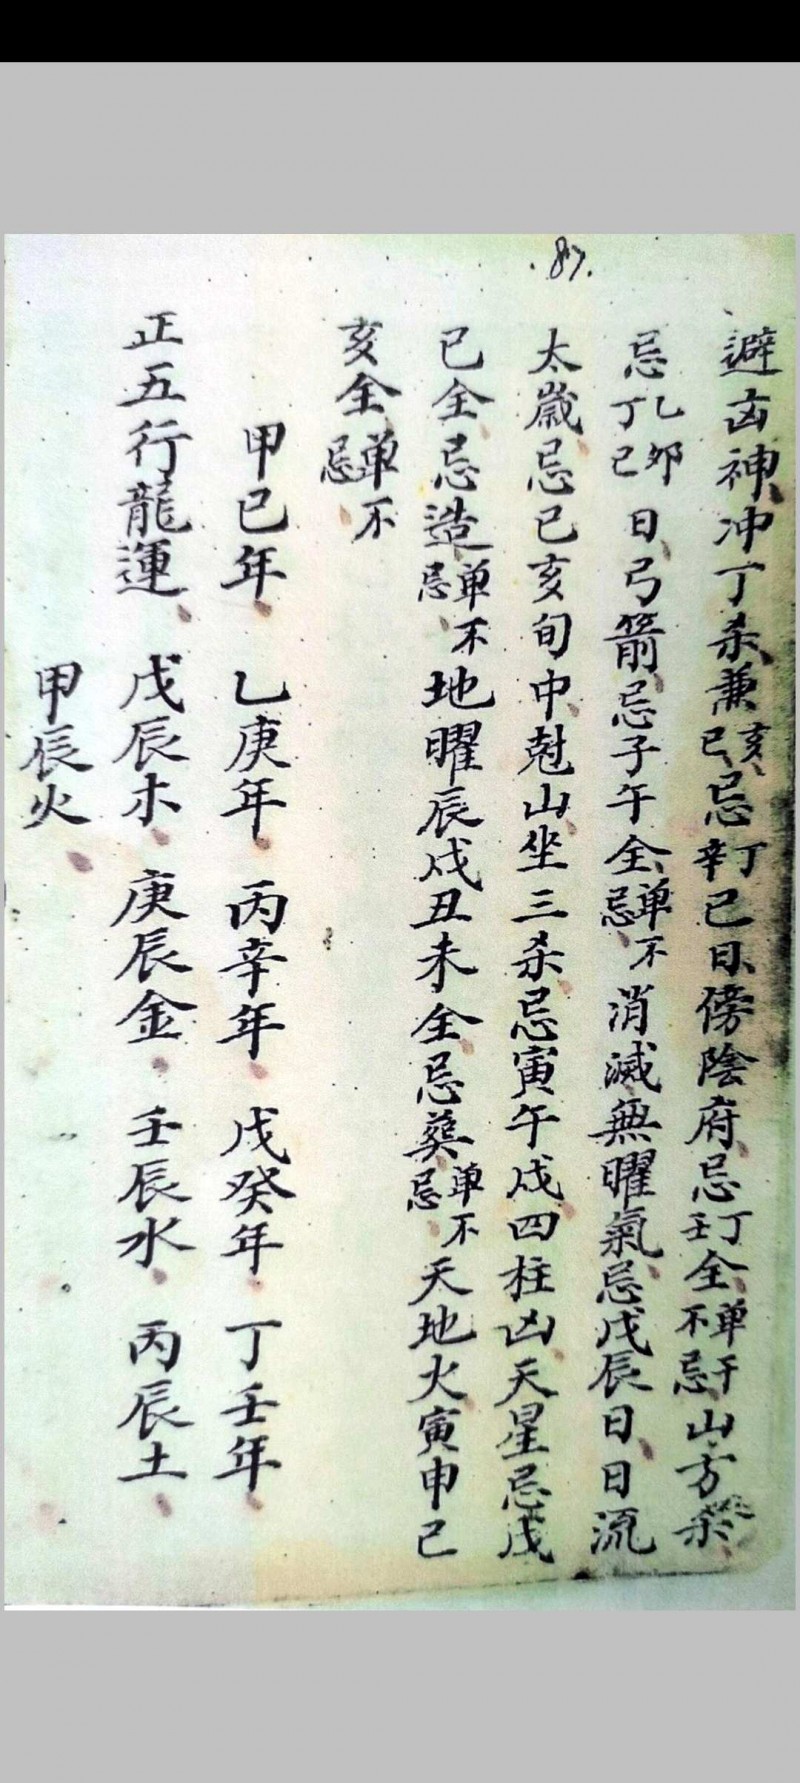 87.
避凶神冲丁杀兼亥巳忌丁辛巳日傍陰府忌丁壬全单干不忌山方杀
忌乙卯丁巳日弓箭忌子午全单不忌消滅無曜氣忌戊辰日日流
太歲忌巳亥旬中尅山坐三杀忌寅午戌四柱凶天星忌戊
巳全忌造单不忌地曜辰戌丑未全忌葬单不忌天地火寅申巳
亥全单不忌
甲巳年 乙庚年 丙辛年 戊癸年 丁壬年
正五行龍運 戊辰木 庚辰金 壬辰水 丙辰土
甲辰火